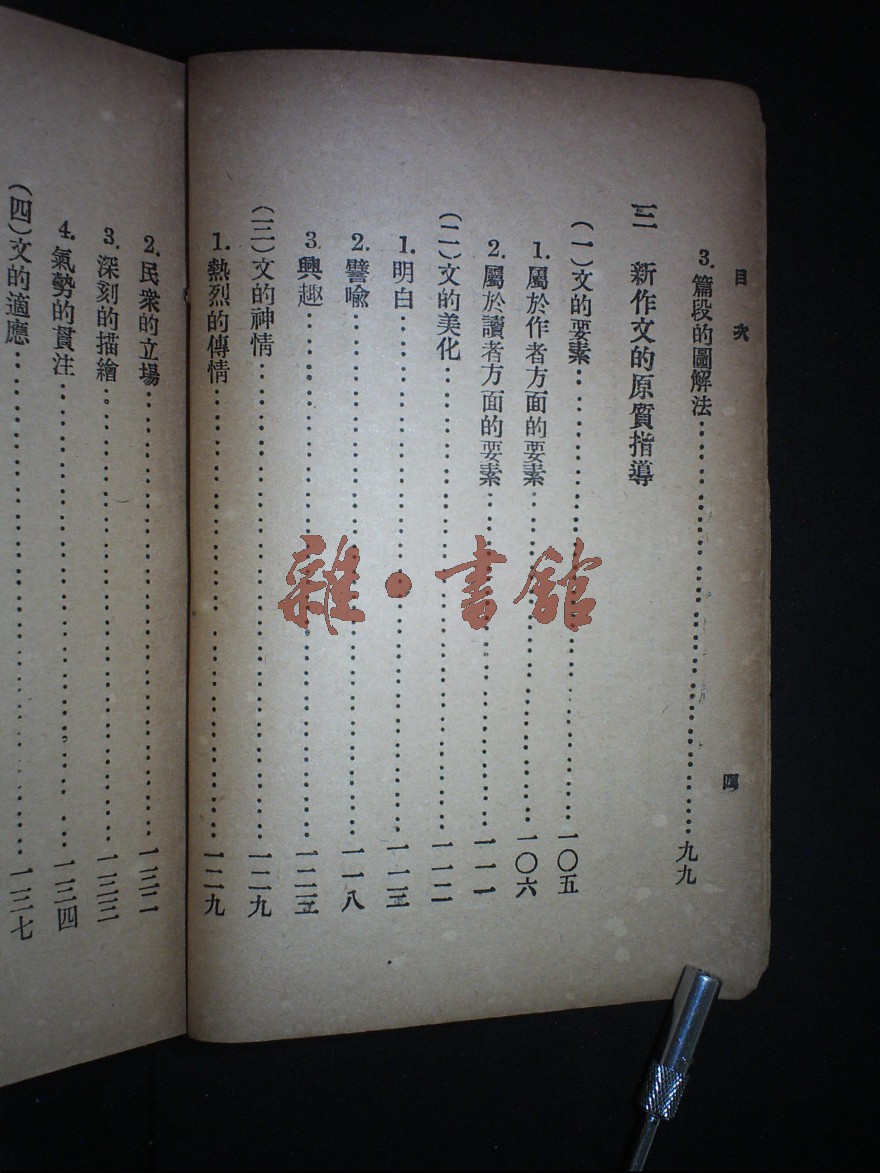 目次
四
3. 篇段的圖解法……九九
三 新作文的原質指導
(一)文的要素……一〇五
1. 屬於作者方面的要素……一〇六
2. 屬於讀者方面的要素……一一一
(二)文的美化……一一二
1. 明白……一一三
2. 譬喻……一一八
3. 興趣……一二三
(三)文的神情……一二九
1. 熱烈的傳情……一二九
2. 民衆的立場……一三二
3. 深刻的描繪……一三三
4. 氣勢的貫注……一三四
(四)文的適應……一三七
雜·書館